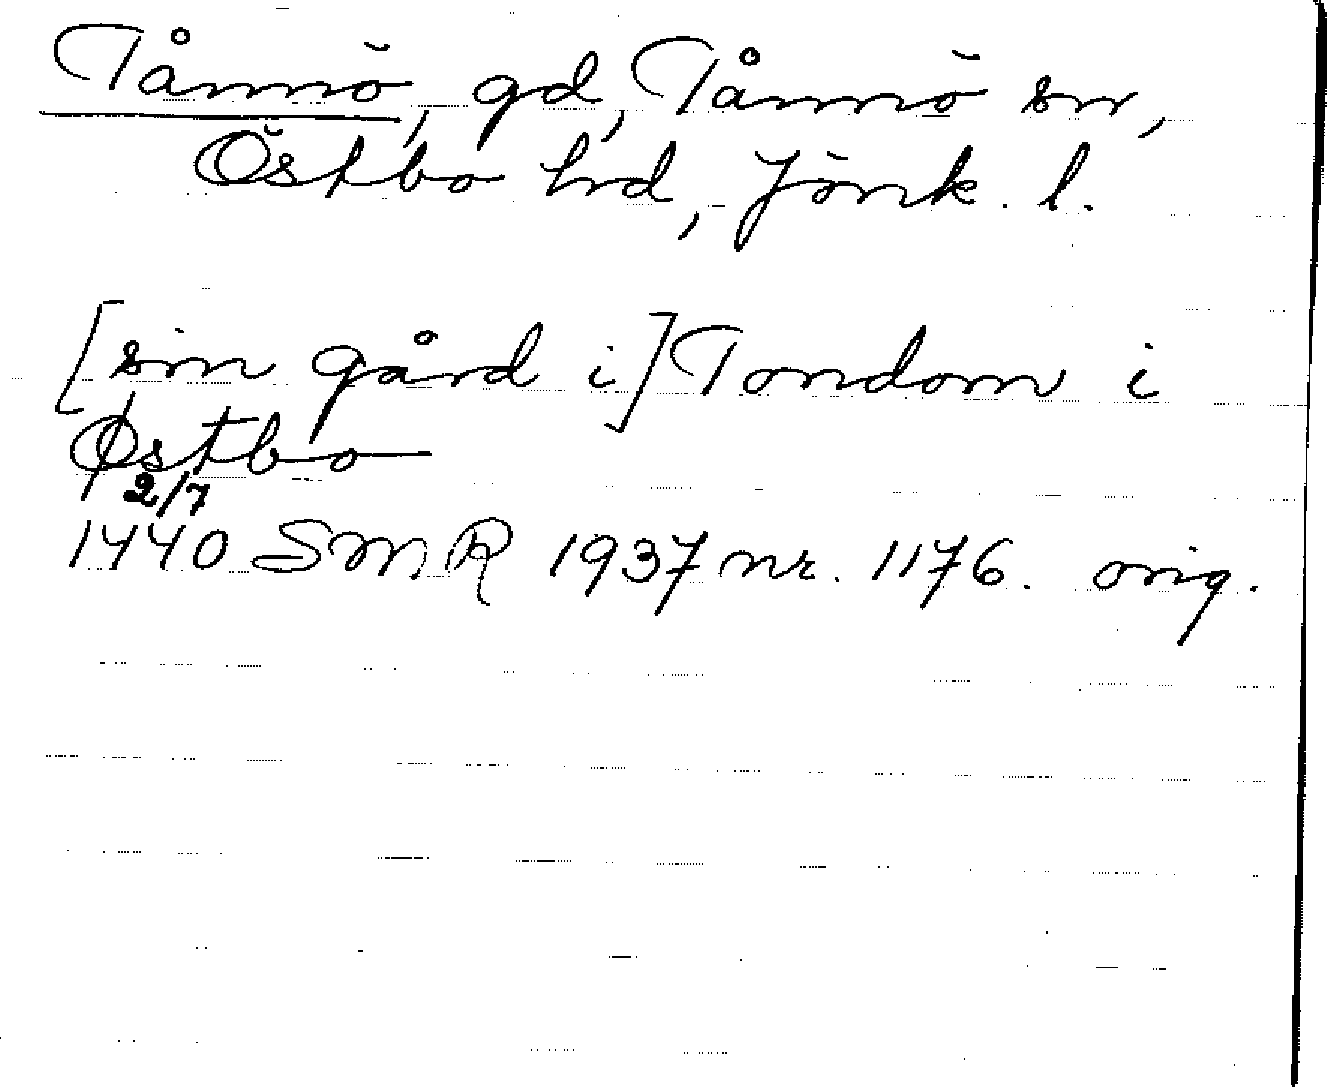 Tånnö, gd, Tånnö sn,
Östbo hd, Jönk. l.
[sin gård i] Tondom i
Østbo
2/7
1440 SMR 1937 nr. 1176. orig.